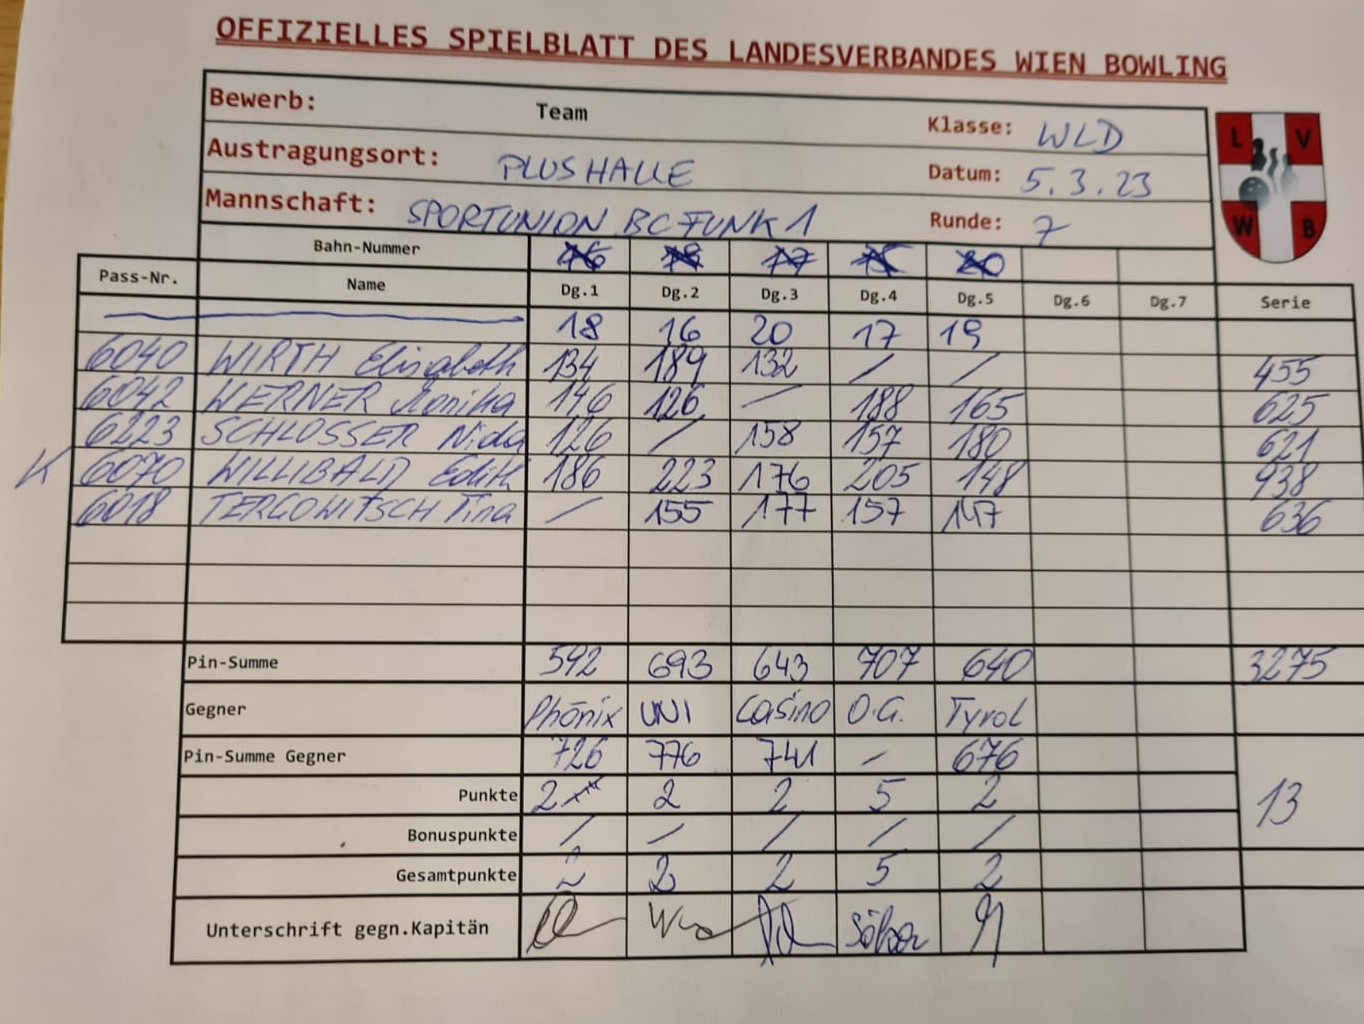 OFFIZIELLES SPIELBLATT DES LANDESVERBANDES WIEN BOWLING
Bewerb: Team Klasse: WLD
Austragungsort: PLUSHALLE Datum: 5.3.23
Mannschaft: SPORTUNION BC FUNK 1 Runde: 7
L V W B
Bahn-Nummer 76 78 77 75 80
Pass-Nr. Name Dg.1 Dg.2 Dg.3 Dg.4 Dg.5 Dg.6 Dg.7 Serie
18 16 20 17 19
6040 WIRTH Elisabeth 134 189 132 / / 455
6042 WERNER Monika 146 126 / 188 165 625
6223 SCHLOSSER Nida 126 / 158 157 180 621
K 6070 WILLIBALD Edith 186 223 176 205 148 938
6018 TERGOWITSCH Tina / 155 177 157 147 636
Pin-Summe 592 693 643 707 640 3275
Gegner Phönix UNI Casino O.G. Tyrol
Pin-Summe Gegner 726 776 741 / 676
Punkte 2 2 2 5 2 13
Bonuspunkte / / / / /
Gesamtpunkte 2 2 2 5 2
Unterschrift gegn.Kapitän